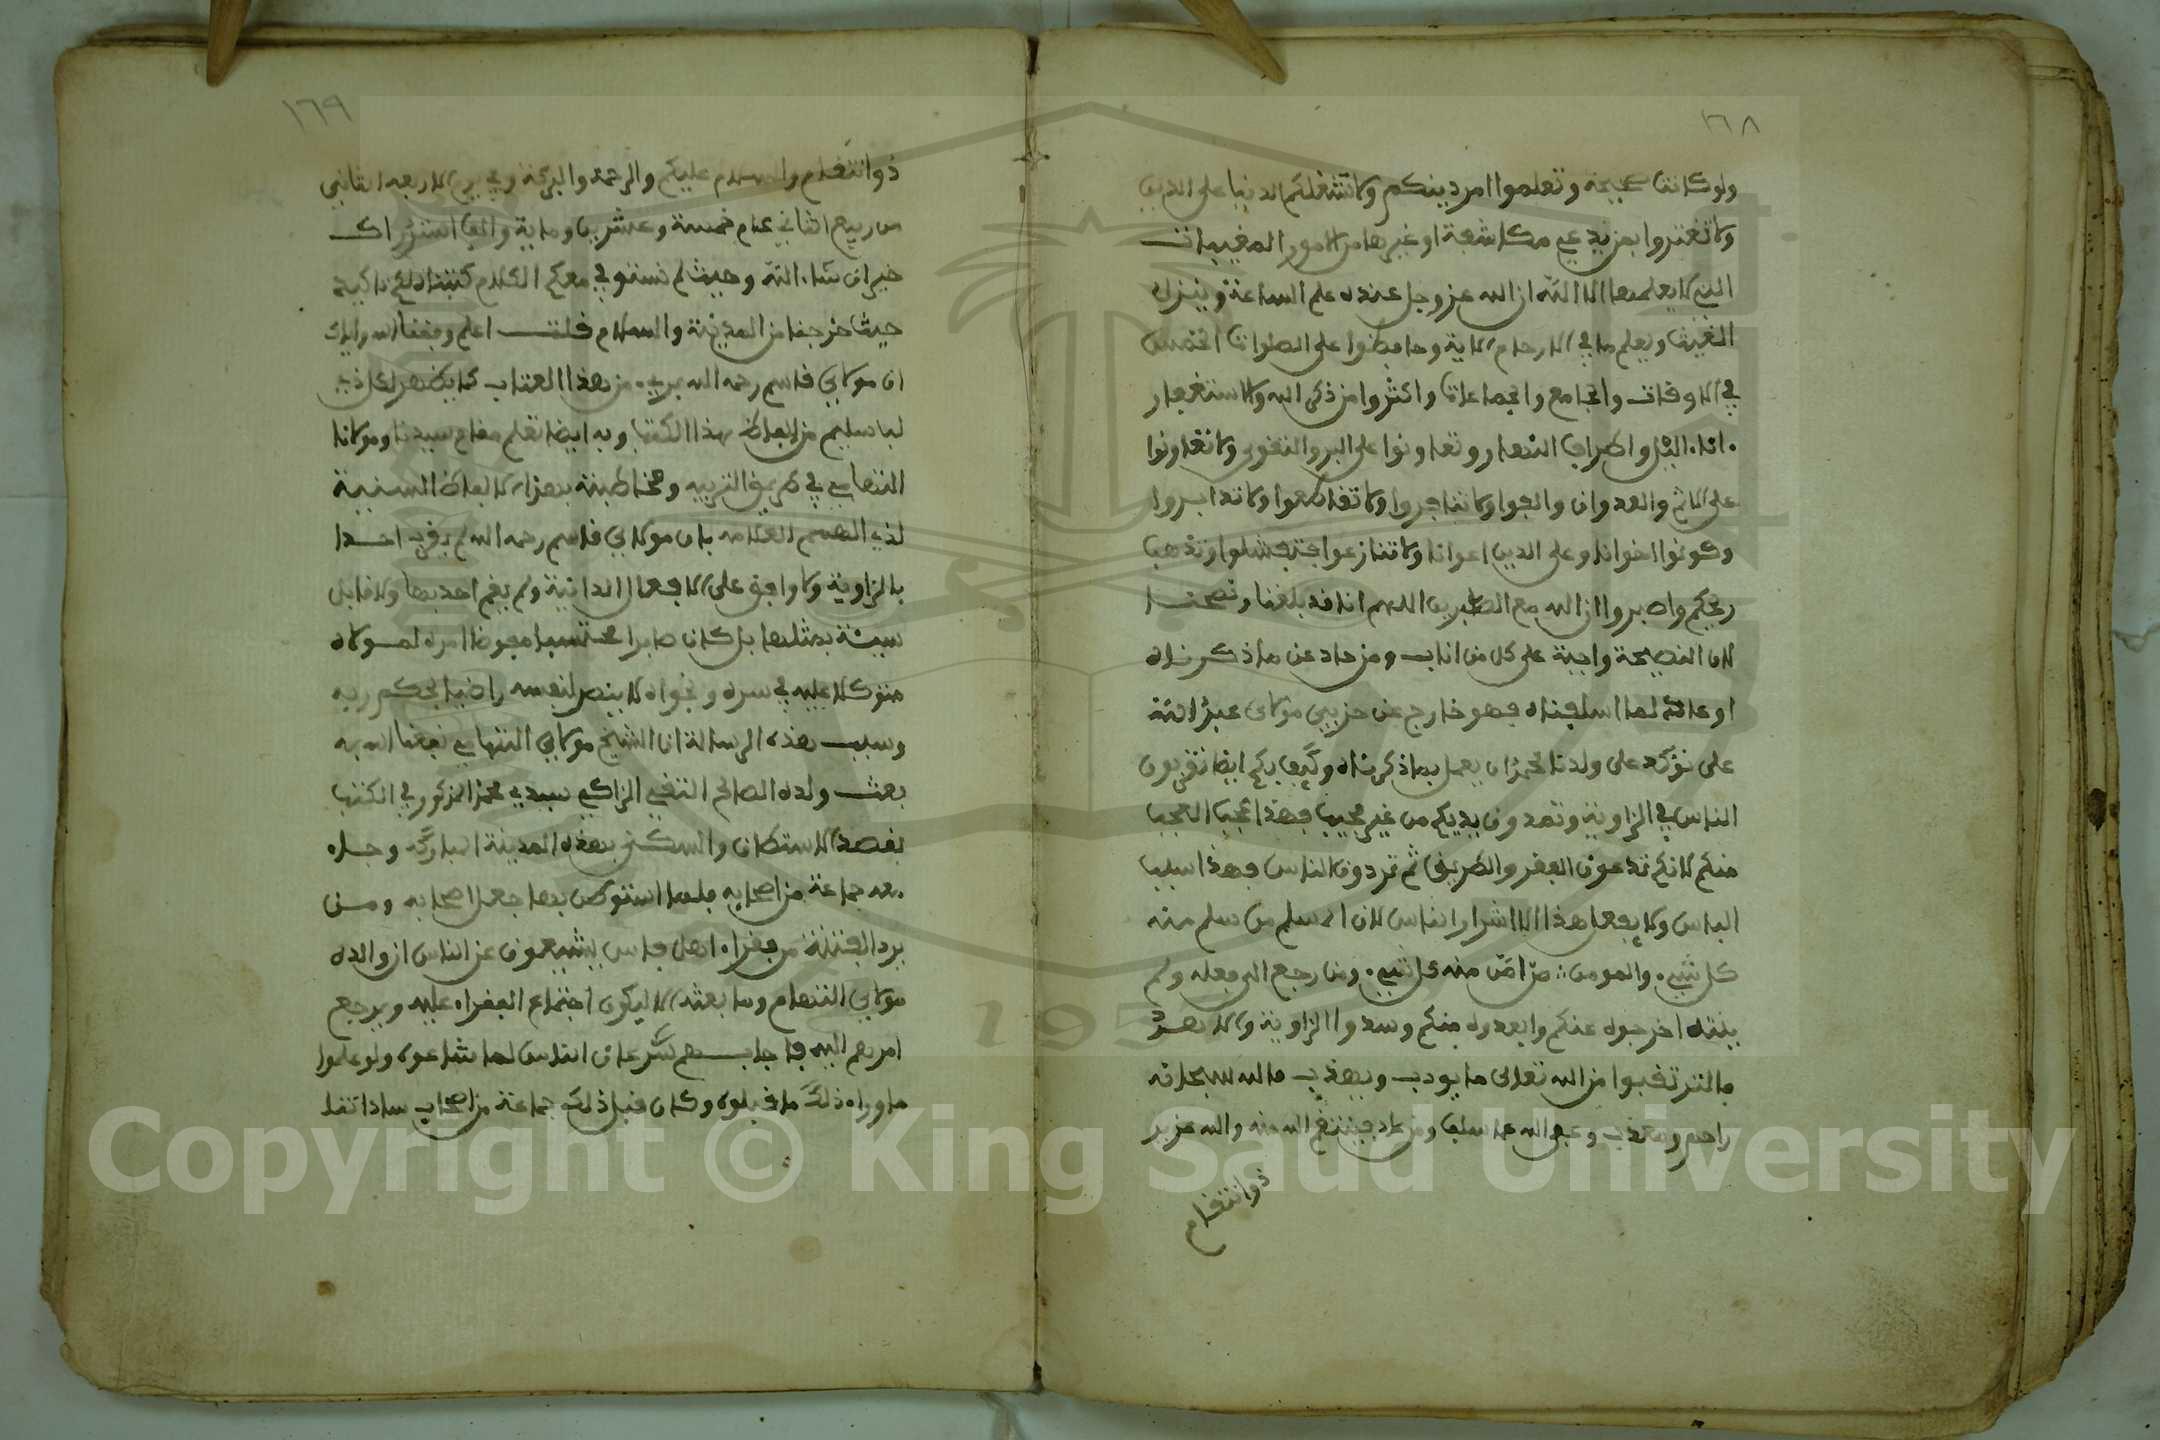 ١٦٨
ولو كانت صحيحة وتعلموا امر دينكم ولا تشغلكم الدنيا على الدين
ولا تغتروا بمن يدعي مكاشفة او غيرها من الامور المغيبات
التي لا يعلمها الا الله ان الله عز وجل عنده علم الساعة وينزل
الغيث ويعلم ما في الارحام الاية وحافظوا على الصلوات الخمس
في الاوقات والجامع والجماعات واكثروا من ذكر الله والاستغفار
ءاناء اليل واطراف النهار وتعاونوا على البر والتقوى ولا تعاونوا
على الاثم والعدوان ولا تقاطعوا ولا تدابروا
وكونوا اخوانا وعلى الدين اعوانا ولا تنازعوا فتفشلوا وتذهب
ريحكم واصبروا ان الله مع الصابرين اللهم انا قد بلغنا ونصحنا
لان النصيحة واجبة على كل من اناب ومن حاد عن ما ذكرناه
او خالف لما اسلفناه فهو خارج عن حزب مولاي عبد الله
على نؤكد على ولدنا محمد ان يعمل بما ذكرناه وكيف بكم ايضا تقربون
الناس في الزاوية وتمدون يديكم من غير فهذا عجب العجب
منكم لانكم تدعون الفقر والطريق ثم تردون الناس فهذا سبب
الباس ولا يفعل هذا الا اشرار الناس لان المسلم من سلم منه
كل شيء والمومن من امن منه كل شيء ومن رجع الى فعله ولم
ينته اخرجوه عنكم وابعدوه منكم وسدوا الزاوية والا بعد
ما لترتقبوا من الله تعالى ما يودب ويهذب فالله سبحانه
راحم ومعذب وعفى الله عما سلف ومن عاد فينتقم الله منه والله عزيز
ذو انتقام
١٦٩
ذو انتقام والسلام عليكم والرحمة والبركة وفي يوم الاربعاء الثاني
من ربيع الثاني عام خمسة وعشرين وماية والف
خير ان شاء الله وحيث لم نستوفي معكم الكلام كتبنا ذلك
حيث خرجنا من المدينة والسلام قلت اعلم وفقنا الله واياك
ان مولاي قاسم رحمه الله بريء من هذا العتاب كما يظهر لكل ذي
لب سليم من الفاظ هذا الكتاب وبه ايضا تعلم مقام سيدنا ومولانا
التهامي في طريق التربية ومخاطبته بهذه الالفاظ السنية
لذي الفهم العلامة بان مولاي قاسم رحمه الله لم يقرب احدا
بالزاوية ولا وافق على الافعال الدانية ولم يقم احد بها ولا قابل
سيئة بمثلها بل كان صابرا محتسبا مفوضا امره لمولاه
متوكلا عليه في سره ونجواه لا ينتصر لنفسه راضيا بحكم ربه
وسبب هذه الرسالة ان الشيخ مولاي التهامي نفعنا الله به
بعث ولده الصالح التقي الزاكي سيدي محمد المذكور في الكتب
بقصد الاستيطان والسكنى بهذه المدينة المباركة وجاء
معه جماعة من اصحابه فلما استوطن بها جعل اصحابه ومن
يرد الفتنة من فقراء اهل فاس يشيعون عن الناس ان والده
مولاي التهام وما بعثه الا ليكون اجتماع الفقراء عليه ويرجع
امرهم اليه فاجابهم شرعان الناس لما شاعوه ولو علموا
ما وراء ذلك ما قبلوه وكان قبل ذلك جماعة من اصحاب ساداتنا
Copyright © King Saud University